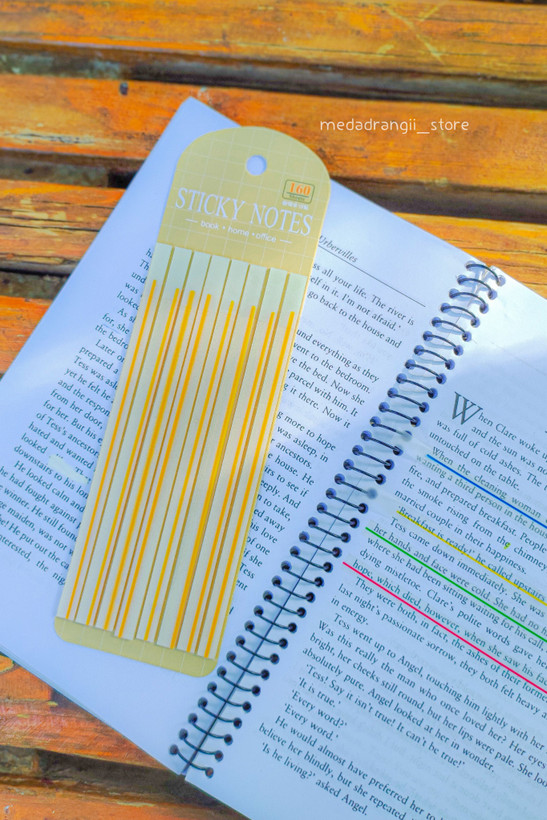 medadrangii_store
160
STICKY NOTES
book • home • office
Urbervilles
ss all your life. The river is
elf in it. I'm not afraid.'
go back to the house and
und everything as they
vent to the bedroom.
re the bed. Now she
parcel with him. It
and there. Now it
g more to hope
was asleep, in
ancestors.
house. He
looked
As s
for, she
the bedro
Later o
prepared a
Tess was ash
yet he felt he
and the respon
from her door
for her. But his
of Tess's ancesto
hated and wanted
looked
downstairs
He looked calm and
he had fought against
e winner. He still foun
ge maiden, was not
e! He put out the ca
nterested, the nig
When Clare woke u
and the sun was no
was full of cold ashes. The
untouched on the table.
When the cleaning woman
wanting a third person in the hous
fire, and prepared breakfast. People
the smoke rising from the chimney
married couple in their happiness.
'Breakfast is ready!' he called upstairs
Tess came down immediately. She was
her hands and face were cold. She had no f
where she had been sitting waiting for his call,
dying mistletoe. Clare's polite words gave her
hope, which died, however, when she saw his fac
They were both, in fact, the ashes of their former
last night's passionate sorrow, they both felt heavy a
in energy.
Tess went up to Angel, touching him lightly with her
Was this really the man who once loved her? Her eyes
bright, her cheeks still round, but her lips were pale. She loo
absolutely pure. Angel looked at her in wonder.
'Tess! Say it isn't true! It can't be true!'
'It is true.'
'Every word?'
'Every word.'
He would almost have preferred her to
believe her blindly, but she repeated
'Is he living?' asked Angel.